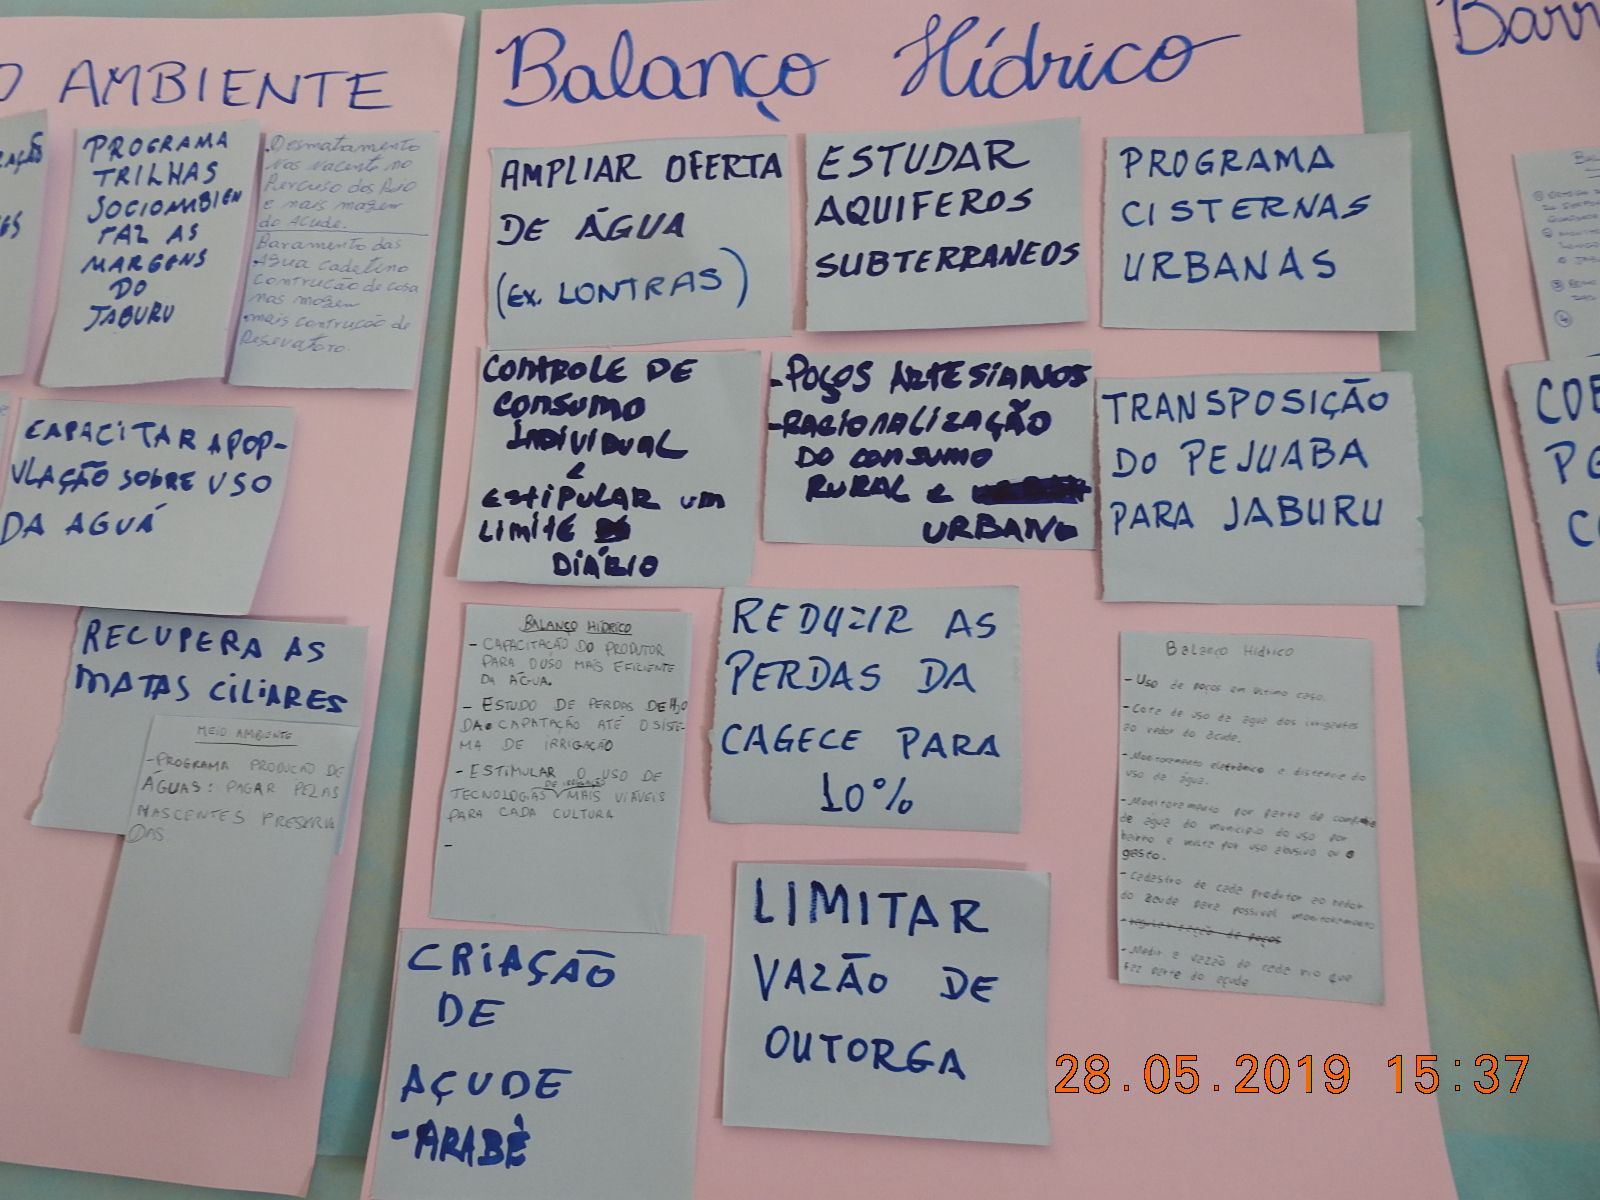 O AMBIENTE
PROGRAMA
TRILHAS
SOCIOAMBIEN
TAL AS
MARGENS
DO
JABURU
Desmatamento
nas nacente no
Percuso dos Rio
e mais magem
do Acude.
Baramento das
Contrução de casa
nas magem
mais contrução de
Reservatoro.
CAPACITAR A POP-
ULAÇÃO SOBRE USO
DA AGUÁ
RECUPERA AS
MATAS CILIARES
MEIO AMBIENTE
-PROGRAMA PRODUÇÃO DE
ÁGUAS: PAGAR PELAS
NASCENTES PRESERVA
DAS
Balanço Hídrico
AMPLIAR OFERTA
DE ÁGUA
(Ex. LONTRAS)
ESTUDAR
AQUIFEROS
SUBTERRANEOS
PROGRAMA
CISTERNAS
URBANAS
CONTROLE DE
CONSUMO
INDIVIDUAL
e
ESTIPULAR UM
LIMITE
DIÁRIO
-POÇOS ARTESIANOS
-RACIONALIZAÇÃO
DO CONSUMO
RURAL e
URBANO
TRANSPOSIÇÃO
DO PEJUABA
PARA JABURU
BALANÇO HÍDRICO
- CAPACITAÇÃO DO PRODUTOR
PARA O USO MAIS EFICIENTE
DA ÁGUA.
- ESTUDO DE PERDAS DE H2O
DA CAPATAÇÃO ATÉ O SISTE-
MA DE IRRIGAÇÃO
- ESTIMULAR O USO DE
DE IRRIGAÇÃO
TECNOLOGIAS MAIS VIÁVEIS
PARA CADA CULTURA
-
REDUZIR AS
PERDAS DA
CAGECE PARA
10%
Balanço Hídrico
- Uso de poços em último caso.
- Cota de uso de água dos irrigantes
ao redor do açude.
- Monitoramento eletrônico a distancia do
uso de água.
- Monitoramento por parte da
de água do município do uso por
bairro e multa por uso abusivo ou
gasto.
- Cadastro de cada produtor ao redor
do açude para possível monitoramento
- Medir a vazão de cada rio que
faz parte do açude
CRIAÇÃO
DE
AÇUDE
-ARABÊ
LIMITAR
VAZÃO DE
OUTORGA
Barr
28.05.2019 15:37